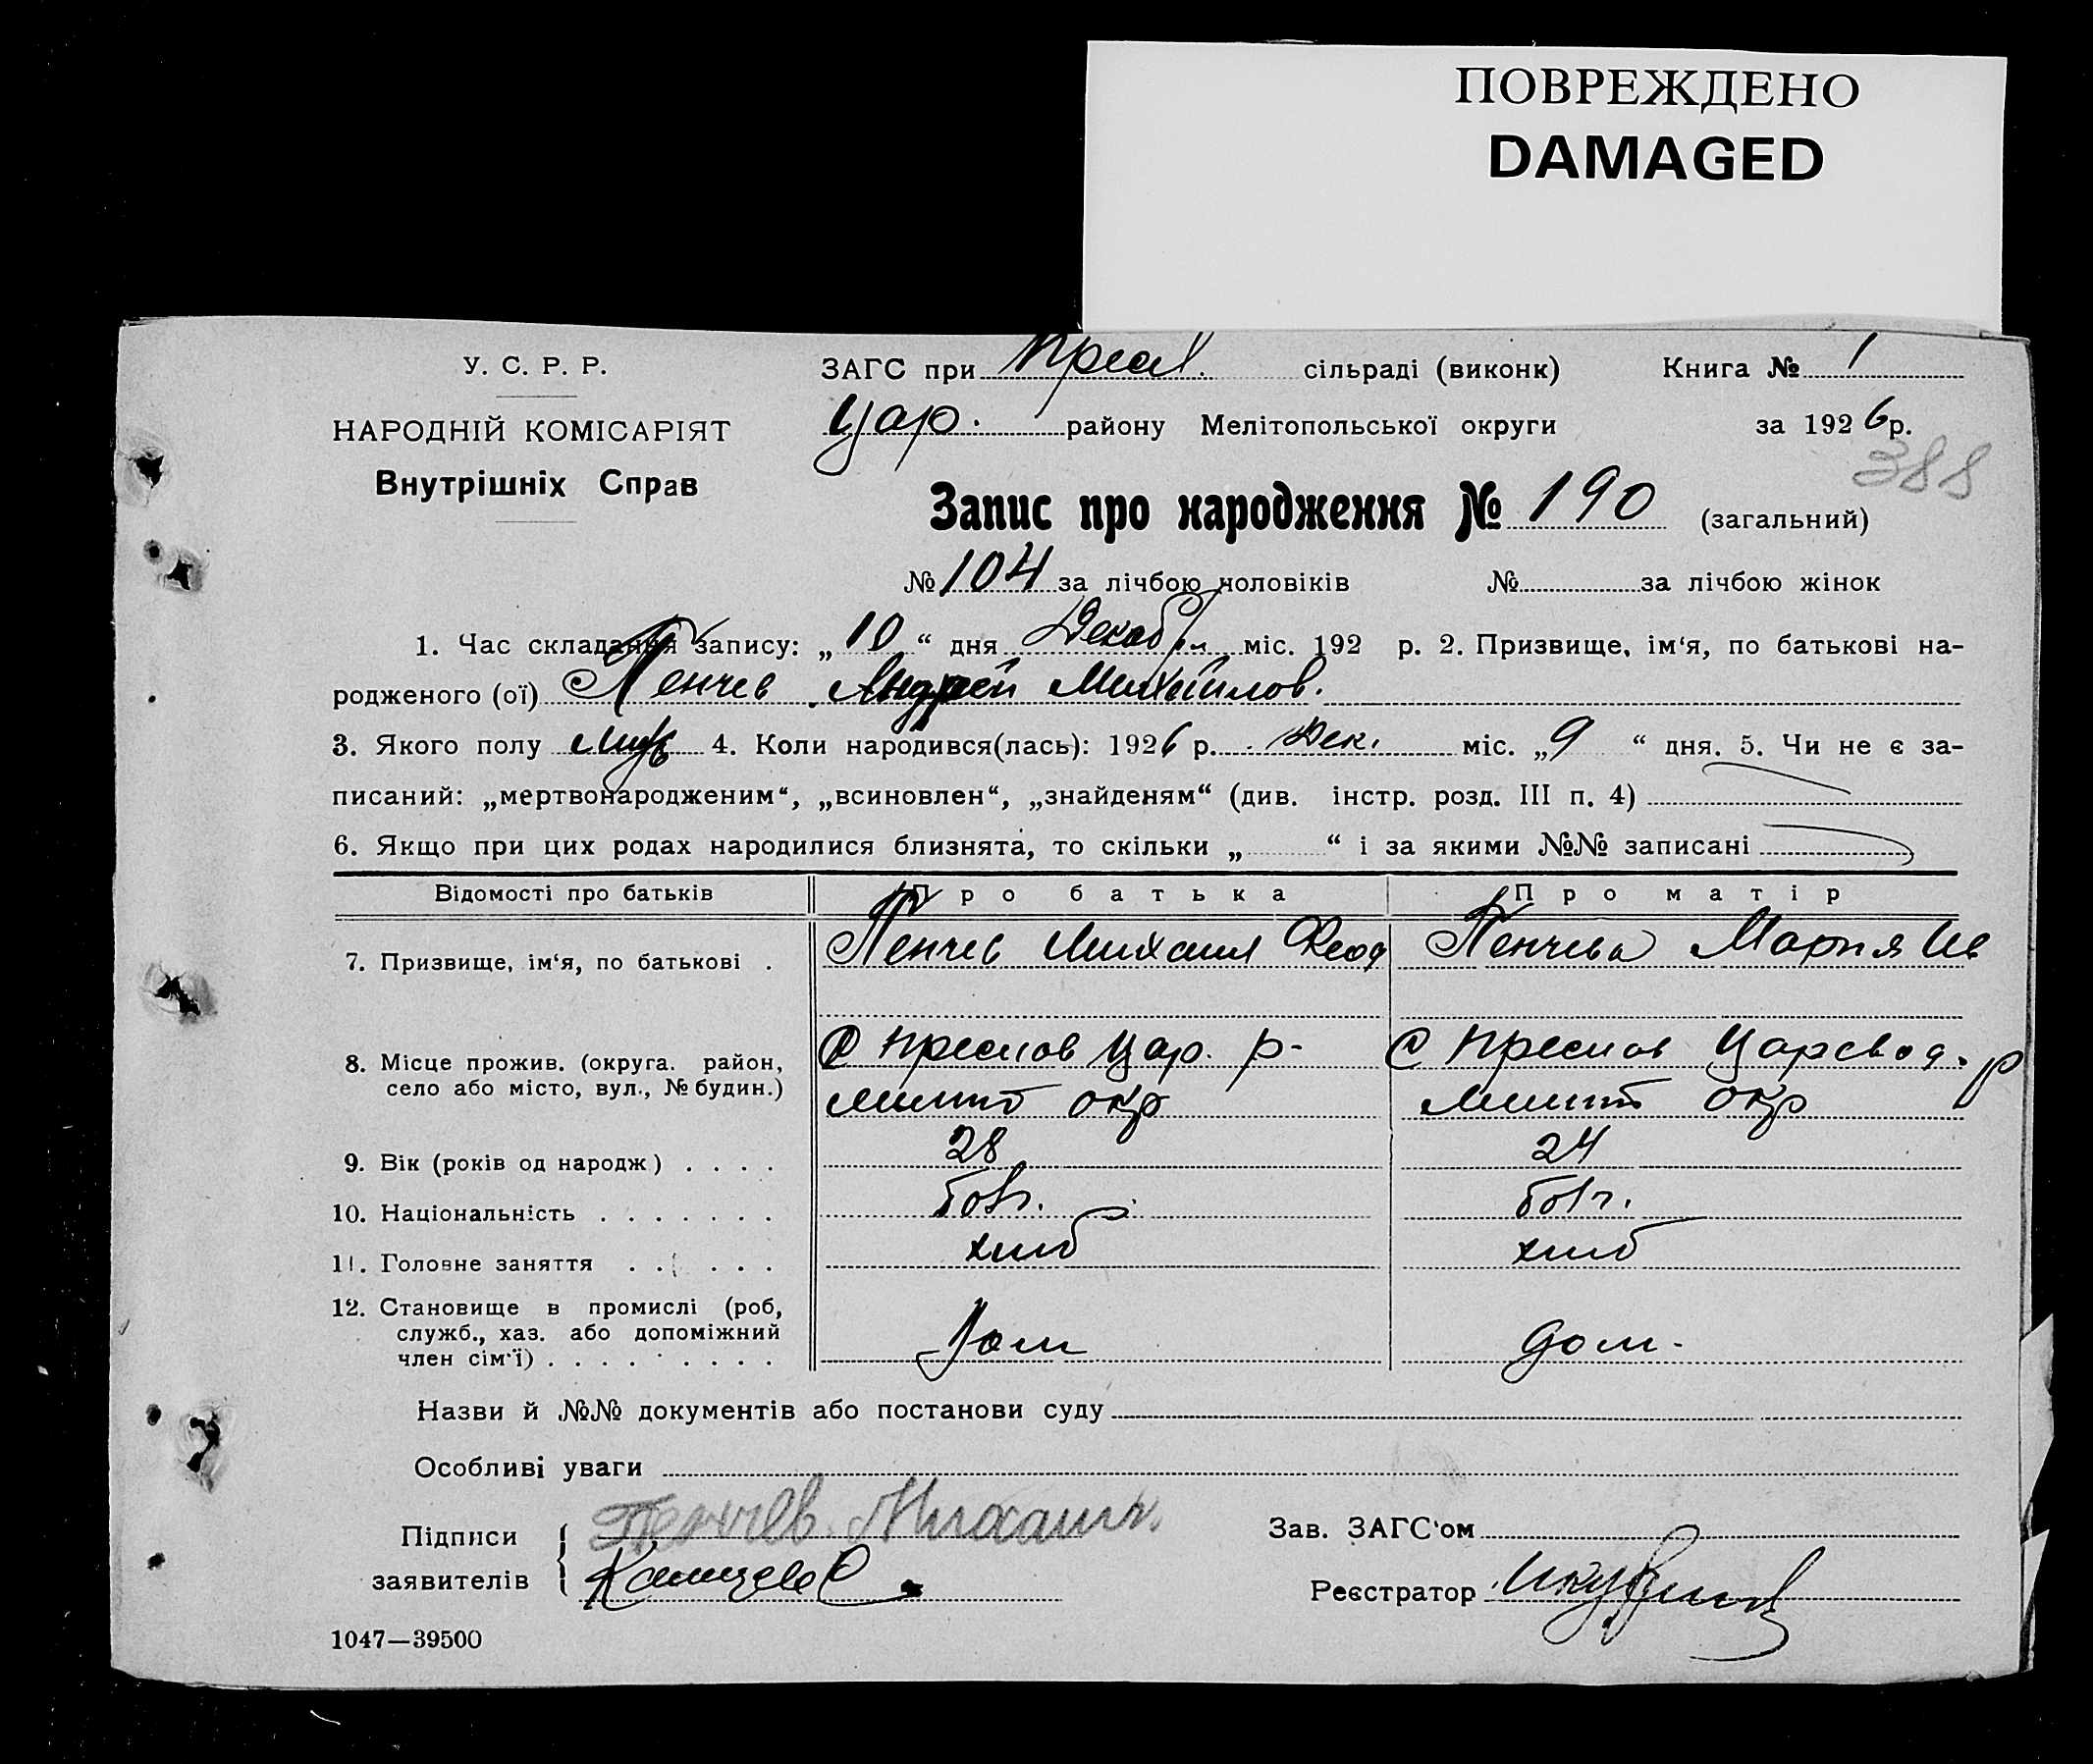 ПОВРЕЖДЕНО
DAMAGED
У. С. Р. Р.
НАРОДНІЙ КОМІСАРІЯТ
Внутрішніх Справ
ЗАГС при Пресл. сільраді (виконк) Книга № 1
Цар. району Мелітопольської округи за 1926 р.
388
Запис про народження № 190 (загальний)
№ 104 за лічбою чоловіків № за лічбою жінок
1. Час складання запису: „10“ дня Декабря міс. 192 р. 2. Призвище, ім‘я, по батькові на-
родженого (ої) Пенчев Андрей Михайлов.
3. Якого полу муж 4. Коли народився(лась): 1926 р. Дек. міс. „9“ дня. 5. Чи не є за-
писаний: „мертвонародженим“, „всиновлен“, „знайденям“ (див. інстр. розд. III п. 4)
6. Якщо при цих родах народилися близнята, то скільки „ “ і за якими №№ записані
Відомості про батьків Про батька Про матір
7. Призвище, ім‘я, по батькові . Пенчев Михаил Феод Пенчева Мария Ив
8. Місце прожив. (округа. район, село або місто, вул., № будин.) С Преслав Цар. р- Мелит окр С Преслав Царевод. р Мелит окр
9. Вік (років од народж) . . . . 28 24
10. Національність . . . . . . . болг. болг.
11. Головне заняття . . . . . хлеб хлеб
12. Становище в промислі (роб, служб., хаз. або допоміжний член сім‘ї) . . . . . . . . . дом.
Назви й №№ документів або постанови суду
Особливі уваги
Підписи заявителів Пенчев. Михаил.
Зав. ЗАГС‘ом
Реєстратор
1047—39500